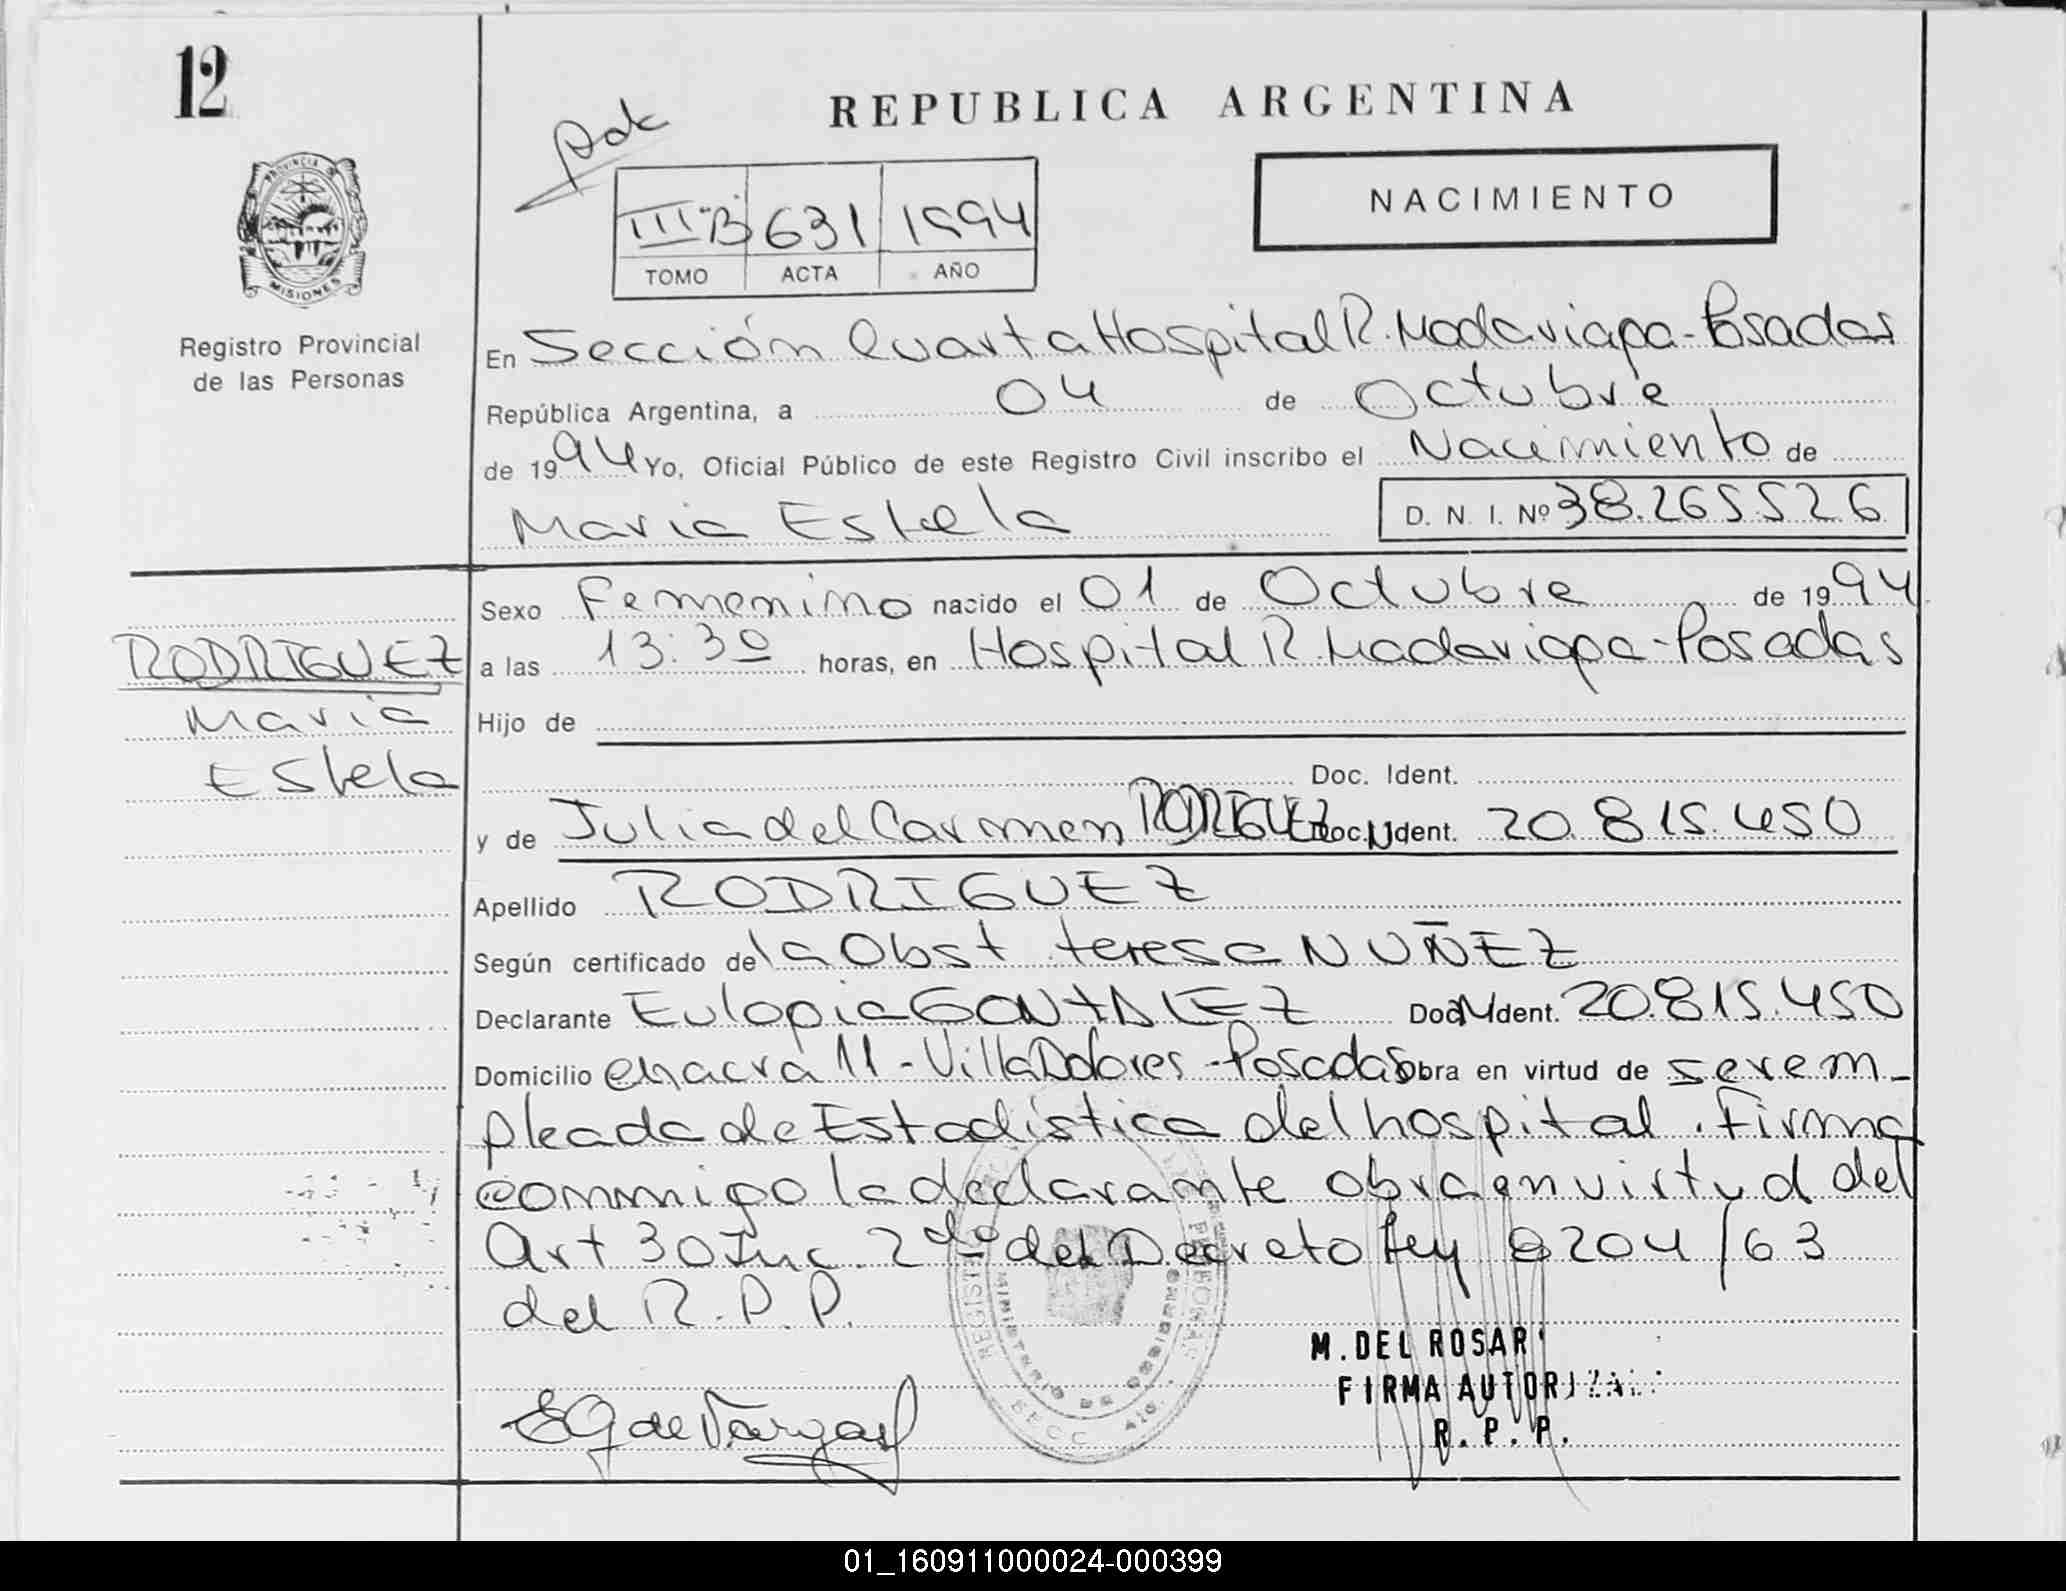 12
REPUBLICA ARGENTINA
PROVINCIA DE
MISIONES
Registro Provincial
de las Personas
III"B" 631 1994
TOMO ACTA AÑO
NACIMIENTO
En Sección Cuarta Hospital R. Madariaga-Posadas
República Argentina, a 04 de Octubre
de 1994 Yo, Oficial Público de este Registro Civil inscribo el Nacimiento de
Maria Estela D. N. I. Nº 38.265.526
Sexo Femenino nacido el 01 de Octubre de 1994
RODRIGUEZ
Maria
Estela
a las 13:30 horas, en Hospital R. Madariaga-Posadas
Hijo de
Doc. Ident.
y de Julia del Carmen RODRIGUEZ Doc. Ident. 20.815.450
Apellido RODRIGUEZ
Según certificado de la Obst teresa NUÑEZ
Declarante Eulogia GONZALEZ Doc. Ident. 20.815.450
Domicilio chacra 11 - Villa Dolores - Posadas obra en virtud de ser em-
pleada de Estadística del hospital. Firma
conmigo la declarante obra en virtud del
Art 30 Inc. 2do del Decreto ley 8204/63
del R.P.P.
EG de Vargas
M. DEL ROSAR
FIRMA AUTORIZAD
R. P. P.
MINISTERIO DE GOBIERNO
SECC
01_160911000024-000399